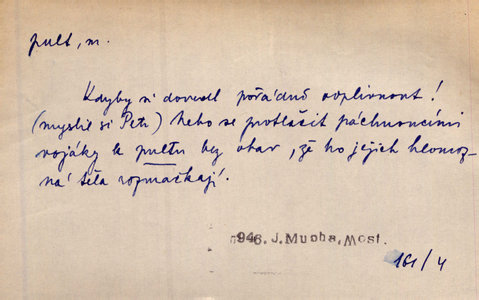 pult, m.
Kdyby si dovedl pořádně odplivnout!
(myslil si Petr) Nebo se protlačit páchnoucími
vojáky k pultu bez obav, že ho jejich hlomoz-
ná těla rozmačkají.
946. J. Mucha, Most.
161/4